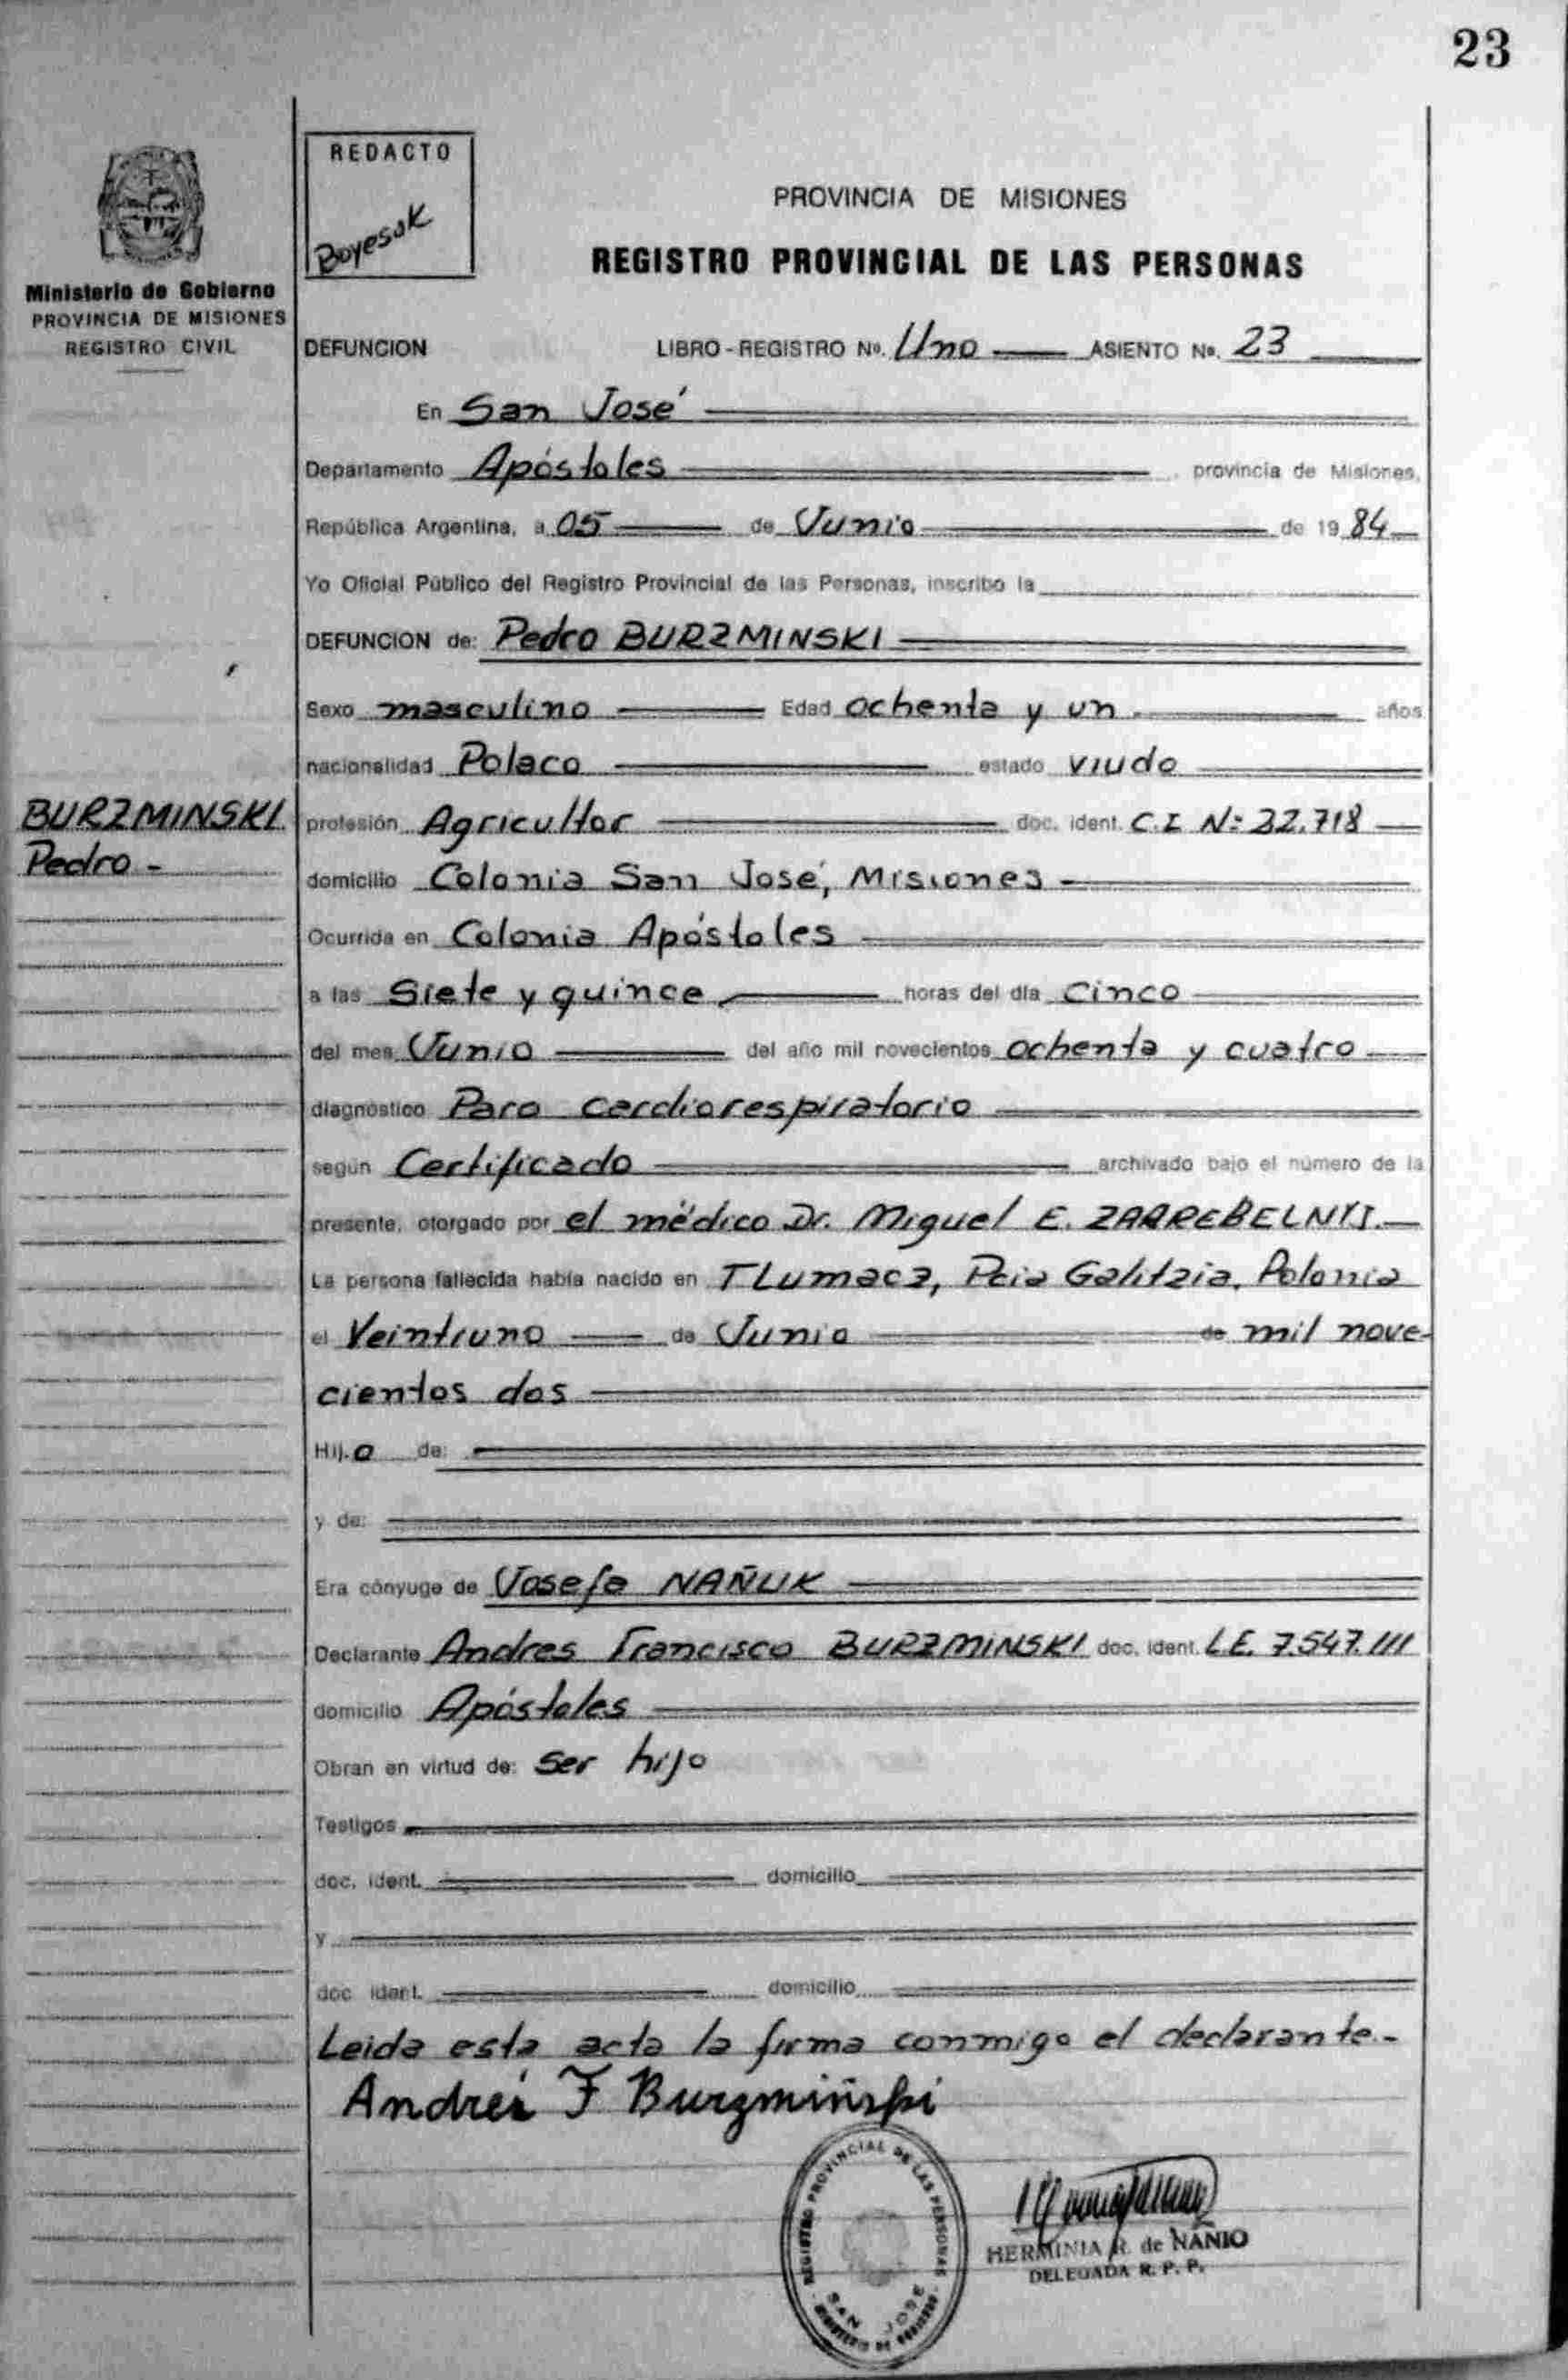 23
Ministerio de Gobierno
PROVINCIA DE MISIONES
REGISTRO CIVIL
BURZMINSKI
Pedro -
REDACTO
Boyesuk
PROVINCIA DE MISIONES
REGISTRO PROVINCIAL DE LAS PERSONAS
DEFUNCION LIBRO - REGISTRO Nº. Uno ASIENTO Nº. 23
En San José
Departamento Apóstoles , provincia de Misiones,
República Argentina, a 05 de Junio de 19 84
Yo Oficial Público del Registro Provincial de las Personas, inscribo la
DEFUNCION de: Pedro BURZMINSKI
Sexo masculino Edad ochenta y un años
nacionalidad Polaco estado viudo
profesión Agricultor doc. ident. C.I Nº 32.718
domicilio Colonia San José, Misiones
Ocurrida en Colonia Apóstoles
a las Siete y quince horas del día Cinco
del mes Junio del año mil novecientos ochenta y cuatro
diagnóstico Paro cardiorespiratorio
según Certificado archivado bajo el número de la
presente, otorgado por el médico Dr. Miguel E. ZARREBELNYJ.
La persona fallecida había nacido en TLumacz, Pcia Galitzia, Polonia
el Veintiuno de Junio de mil nove-
cientos dos
Hij.o de:
y de:
Era cónyuge de Josefa NAÑUK
Declarante Andres Francisco BURZMINSKI doc. ident. L.E. 7.547.111
domicilio Apóstoles
Obran en virtud de: ser hijo
Testigos
doc. ident. domicilio
y
doc. ident. domicilio
Leida esta acta la firma conmigo el declarante.-
Andrés F Burzmiński
REGISTRO PROVINCIAL DE LAS PERSONAS
SAN JOSE
MINISTERIO DE GOBIERNO
HERMINIA R. de NANIO
DELEGADA R. P. P.